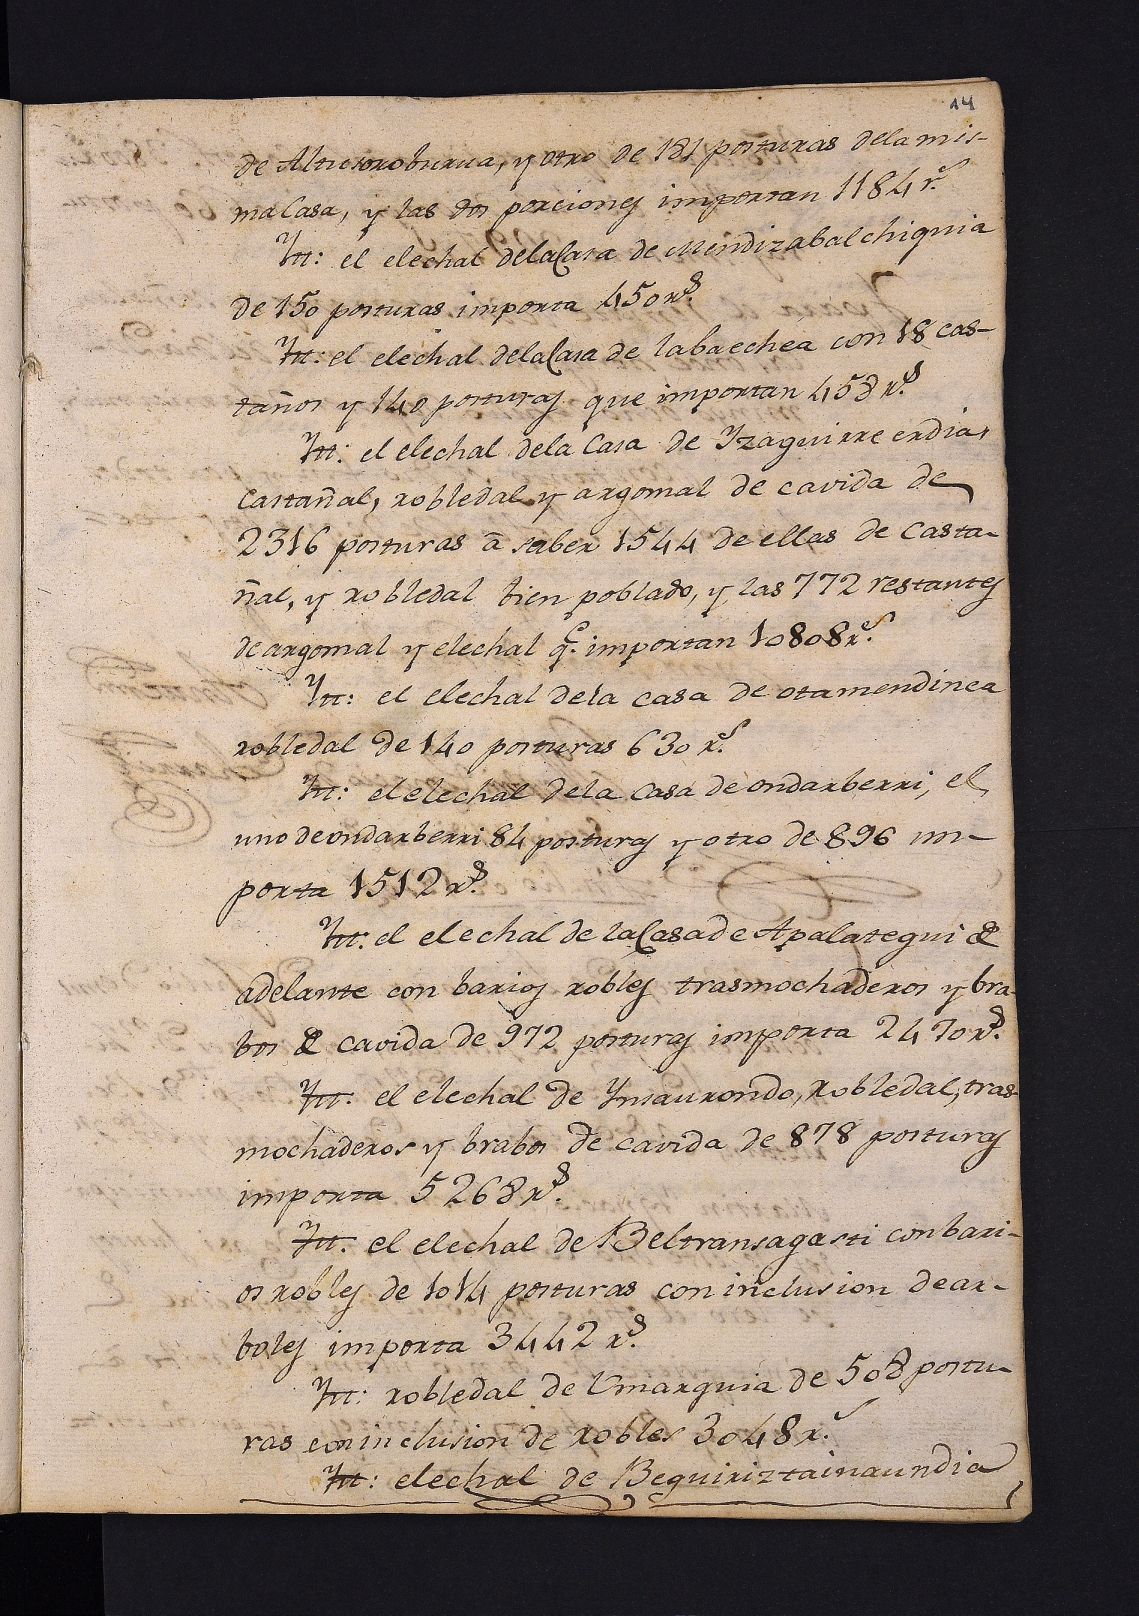 14
de Altuesoroburua, y otro de 181 posturas dela mis-
ma Casa, y las dos porciones importan 1184 rs.
Ytt: el elechal dela Casa de Mendizabalchiquia
de 150 posturas importa 450 rs.
Ytt: el elechal dela Casa de labaechea con 18 cas-
taños y 140 posturas que importan 458 rs.
Ytt: el elechal dela Casa de Yzaguirre erdia,
castañal, robledal y argomal de cavida de
2316 posturas â saber 1544 de ellas de Casta-
ñal, y robledal bien poblado, y las 772 restantes
de argomal y elechal q.e importan 10808 rs.
Ytt: el elechal dela casa de otamendinea
robledal de 140 posturas 630 rs.
Ytt: el elechal dela Casa de ondarberri, el
uno de ondarberri 84 posturas y otro de 896 im-
porta 1512 rs.
Ytt: el elechal de la Casa de Apalategui de
adelante con barios robles trasmochaderos y bra-
bos de cavida de 972 posturas importa 2470 rs.
Ytt. el elechal de Ynsaurondo, Robledal, tras-
mochaderos y brabos de cavida de 878 posturas
importa 5268 rs.
Ytt. el elechal de Beltransagasti con bari-
os robles de 1014 posturas con inclusion de ar-
boles importa 3442 rs.
Ytt: robledal de Umarguia de 508 postu-
ras con inclusion de robles 3048 rs.
Ytt: elechal de Beguiriztainaundia